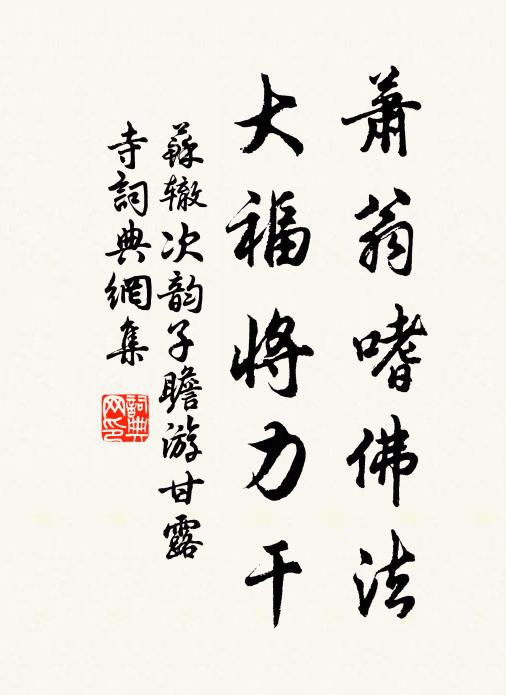 蕭翁嗜佛法
大福將力干
蘇辙次韵子瞻游甘露
寺詞典網集
詞典
网印